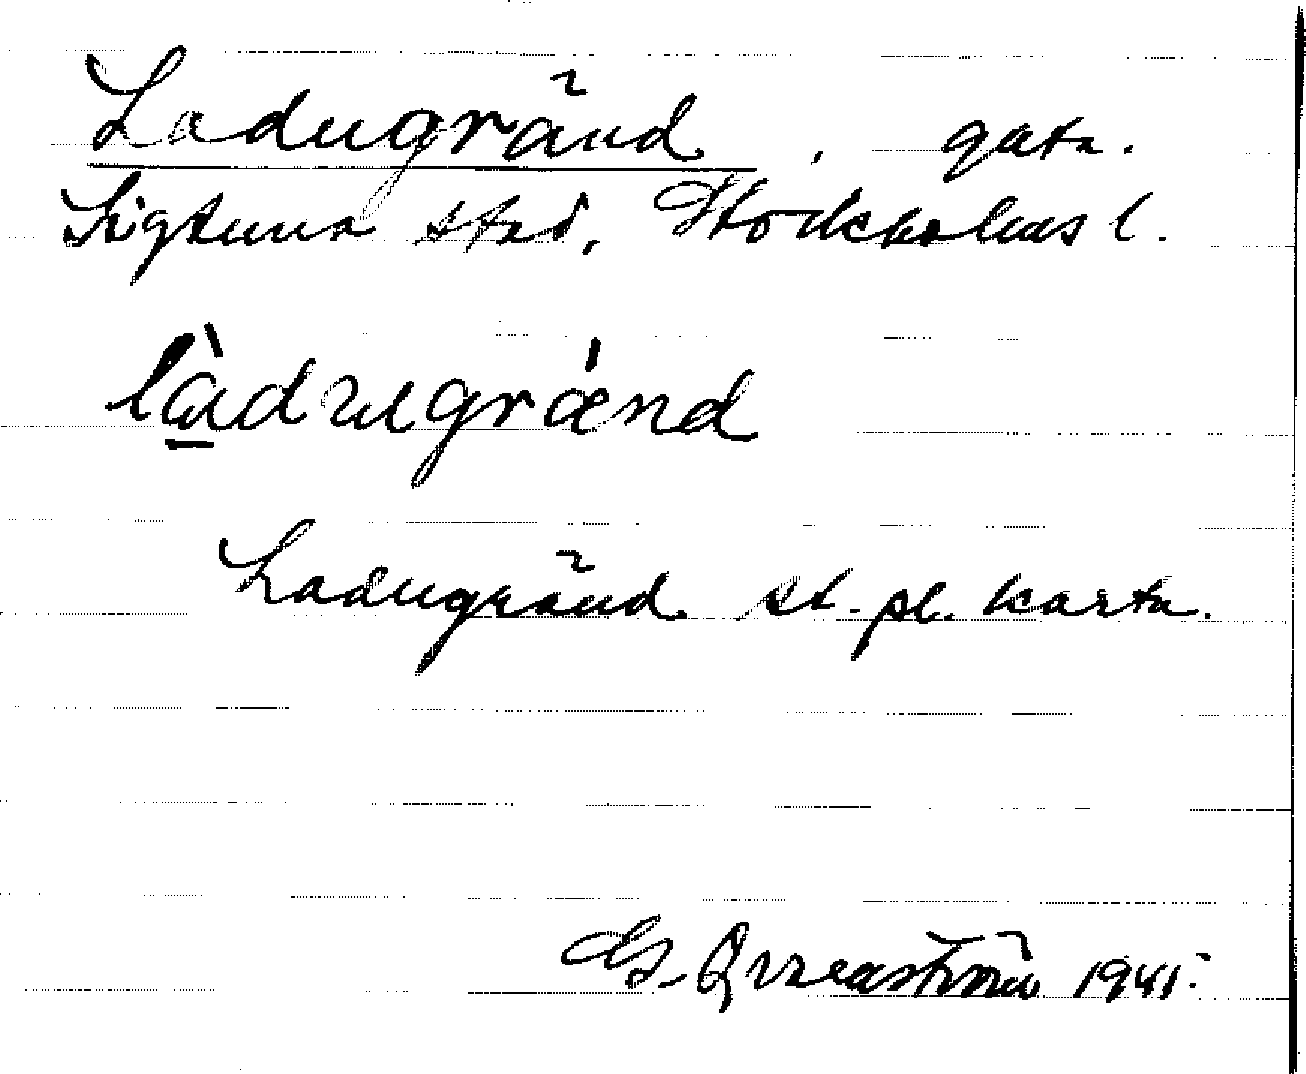 Ladugränd, gata.
Sigtuna stad, Stockholms l.
làdugrænd
Ladugränd st. pl. karta.
G. Qvarnström 1941.